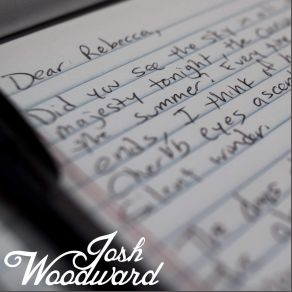 Dear Rebecca,
Did you see the sky in all
majesty tonight the
the summer? Every
ends, I think it
Cherub eyes ascen
Silent wonder.
The days
the
Josh
Woodward